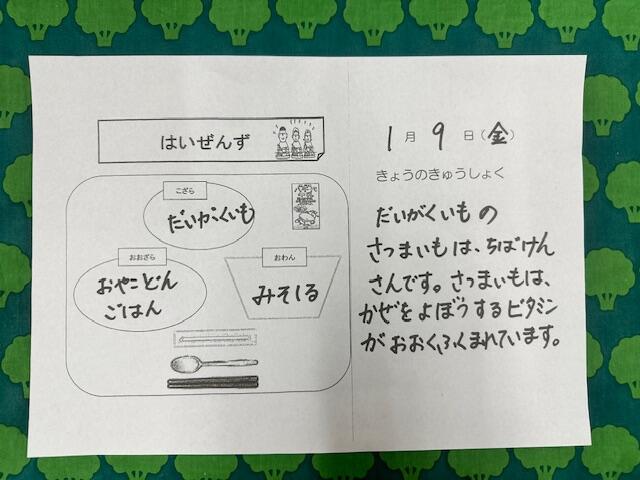 はいぜんず
こざら
だいがくいも
おおざら
おやこどん
ごはん
おわん
みそしる
1月9日(金)
きょうのきゅうしょく
だいがくいもの
さつまいもは、ちばけん
さんです。さつまいもは、
かぜをよぼうするビタミン
がおおくふくまれています。